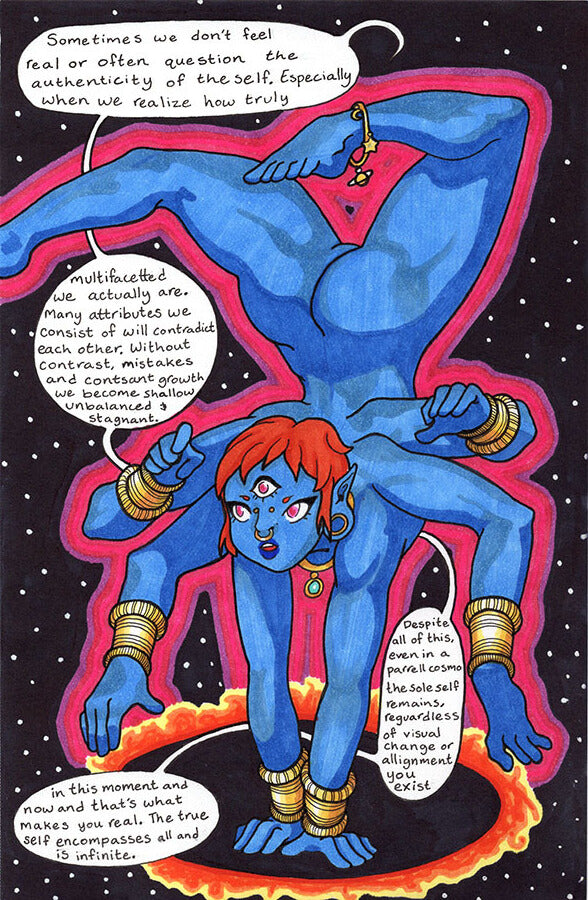 Sometimes we don't feel
real or often question the
authenticity of the self. Especially
when we realize how truly
multifacetted
we actually are.
Many attributes we
consist of will contradict
each other. Without
contrast, mistakes
and contsant growth
we become shallow
unbalanced &
stagnant.
Despite
all of this,
even in a
parrell cosmo
the sole self
remains,
reguardless
of visual
change or
allignment
you
exist
in this moment and
now and that's what
makes you real. The true
self encompasses all and
is infinite.